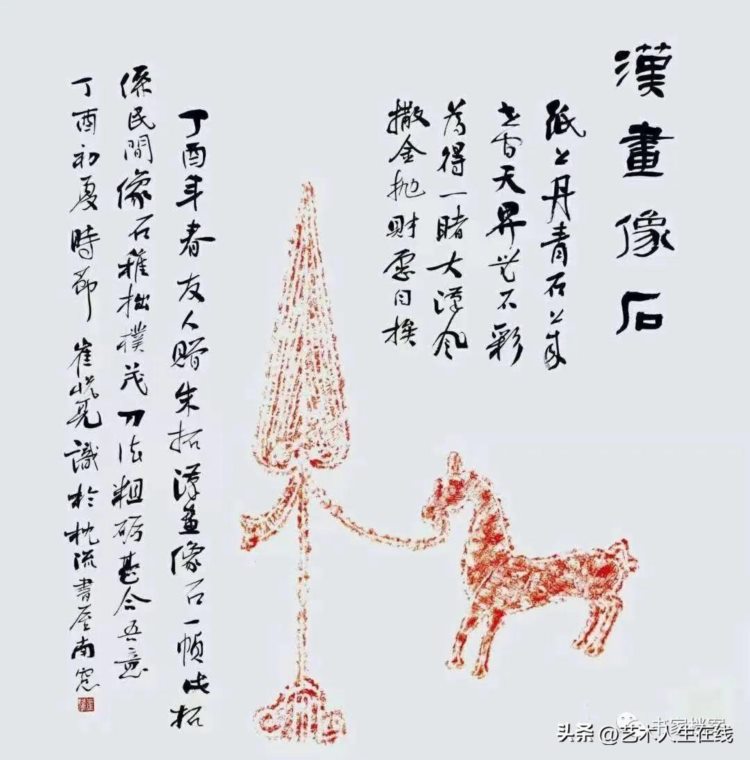 漢畫像石
紙上丹青石上
天
為得一睹大漢風
撒金拋財
丁酉年春友人贈朱拓漢畫像石一幀此拓
係民間像石稚拙樸茂刀法粗礪甚合吾意
丁酉初夏時節 崔亮識於枕流書屋南窓
书家档案
头条 @艺术人生在线